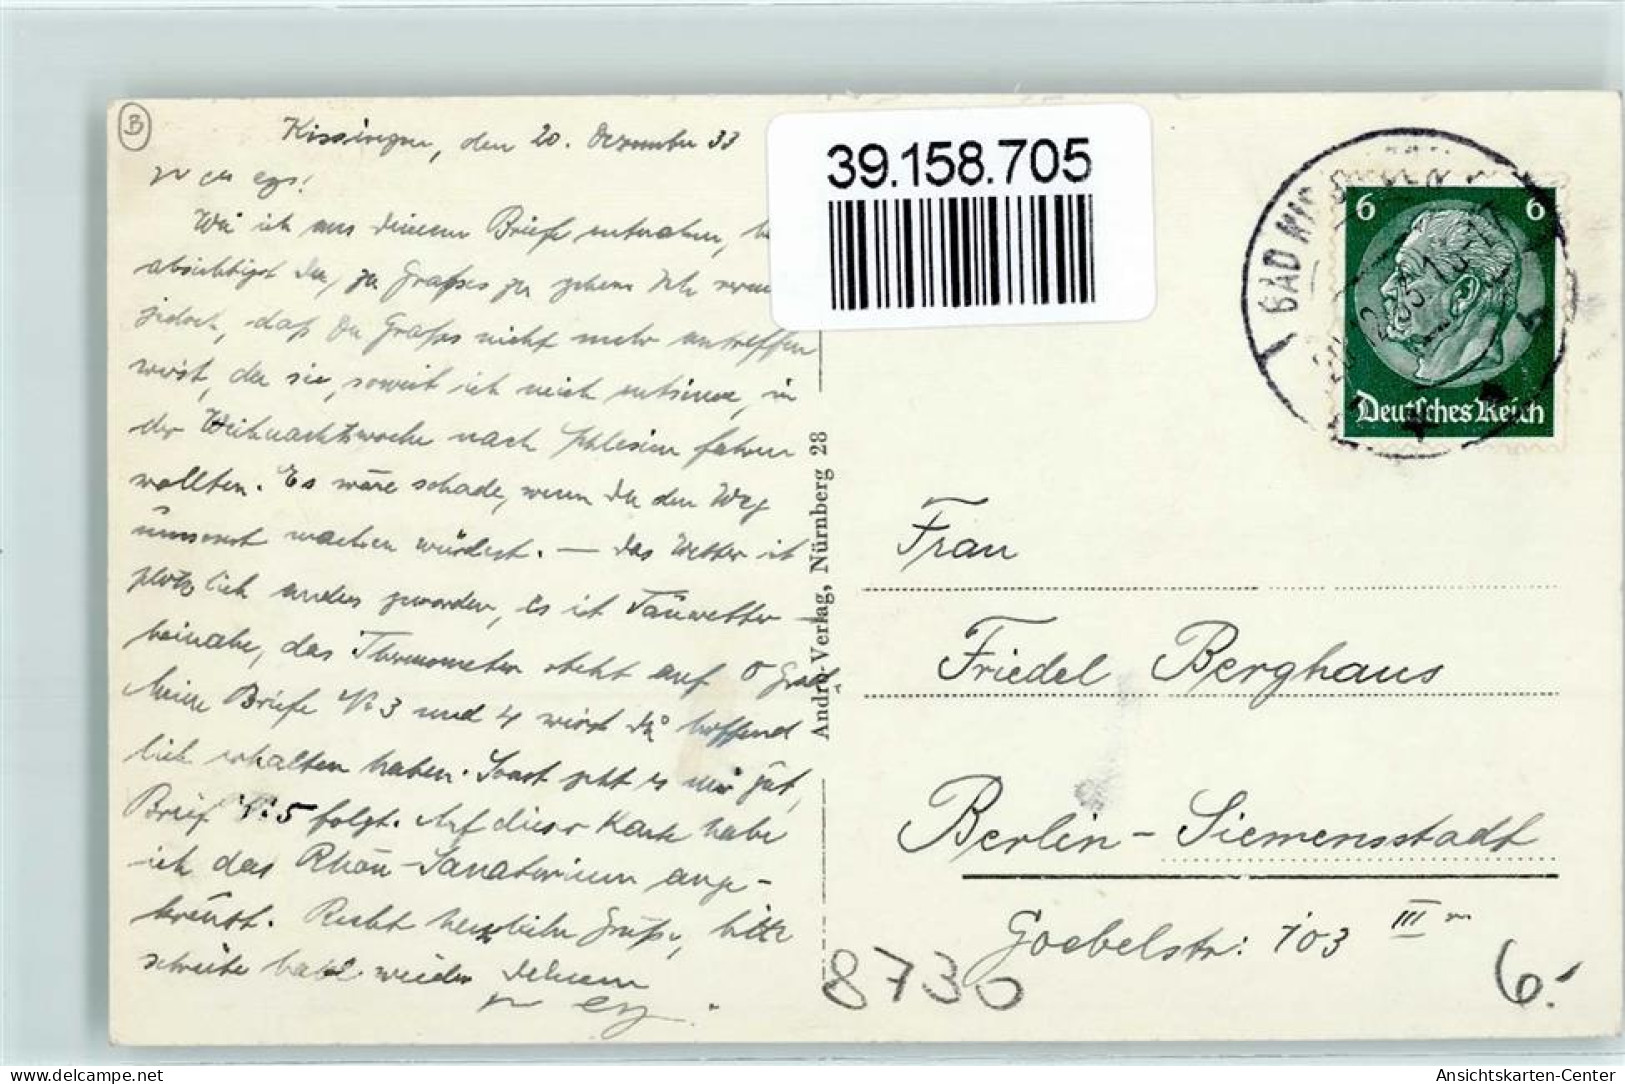 B
Kissingen, den 20. Dezember 33
Wie ich aus Deinem Briefe entnahm, be
absichtigst Du, zu Graßes zu gehen. Ich
jedoch, daß Du Graßes nicht mehr antreffen
wirst, da sie, soweit ich mich entsinne, in
der Weihnachtswoche nach Schlesien fahren
wollten. Es wäre schade, wenn Du den Weg
umsonst machen würdest. — Das Wetter ist
plötzlich anders geworden, es ist Tauwetter —
beinahe, das Thermometer steht auf 0 Grad.
Meine Briefe Nr. 3 und 4 wirst Du hoffend
lich erhalten haben. Sonst geht es mir gut,
Brief Nr. 5 folgt. Auf dieser Karte habe
ich das Rhön-Sanatorium ange-
kreuzt. Recht herzliche Grüße, bitte
schreibe bald wieder Deinem
Andro-Verlag, Nürnberg 28
39.158.705
BAD KIS
20.12.33
6 6
Deutsches Reich
Frau
Friedel Berghaus
Berlin-Siemensstadt
Goebelstr. 103 III
8730
6.-
oldthing.de
Ansichtskarten-Center